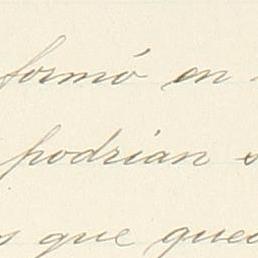 formó en
podrian
que